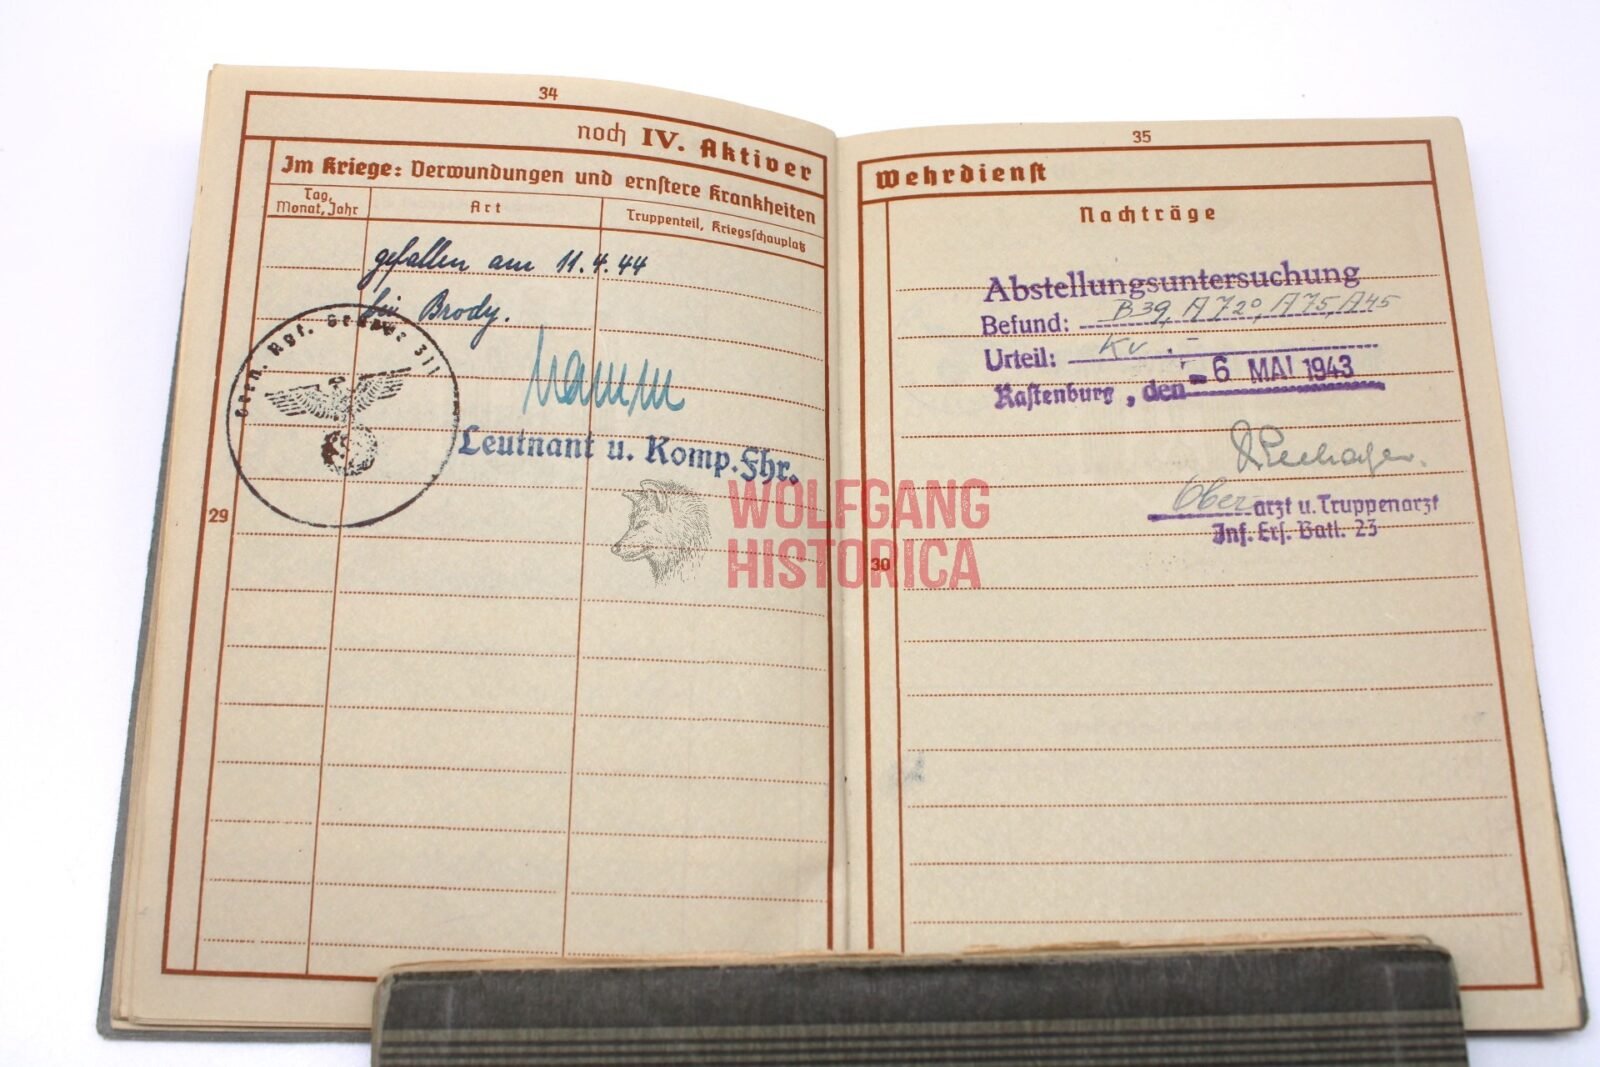 34
noch IV. Aktiver
Im Kriege: Verwundungen und ernstere Krankheiten
Tag, Monat, Jahr
Art
Truppenteil, Kriegsschauplatz
gefallen am 11.4.44
bei Brody.
Leutnant u. Komp.Fhr.
29
WOLFGANG
HISTORICA
35
Wehrdienst
Nachträge
Abstellungsuntersuchung
Befund: B 39, A 72, A 75, A 45
Urteil: Kv.
Rastenburg, den -6 MAI 1943
Oberarzt u. Truppenarzt
Inf. Ers. Batl. 23
30